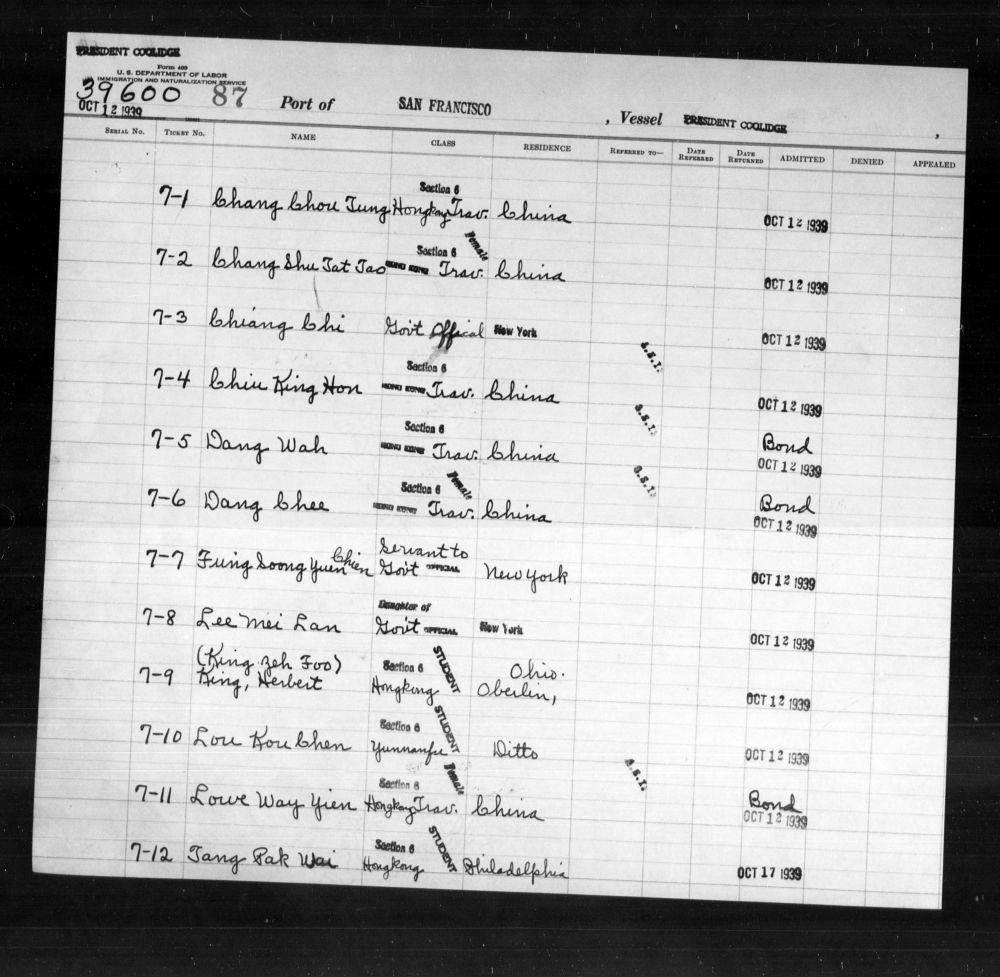 PRESIDENT COOLIDGE
Form 409
U. S. DEPARTMENT OF LABOR
IMMIGRATION AND NATURALIZATION SERVICE
39600 87 Port of SAN FRANCISCO , Vessel PRESIDENT COOLIDGE ,
OCT 12 1939
SERIAL No. TICKET No. NAME CLASS RESIDENCE REFERRED TO— DATE REFERRED DATE RETURNED ADMITTED DENIED APPEALED
Section 6
7-1 Chang Chou Tung Hongkong Trav. China OCT 12 1939
Section 6 Female
7-2 Chang Shu Tat Tao HONG KONG Trav. China OCT 12 1939
7-3 Chiang Chi Gov't Offical New York OCT 12 1939
Section 6 B.S.I.
7-4 Chiu King Hon HONG KONG Trav. China OCT 12 1939
Section 6 B.S.I. Bond
7-5 Dang Wah HONG KONG Trav. China OCT 12 1939
Section 6 Female B.S.I. Bond
7-6 Dang Chee HONG KONG Trav. China OCT 12 1939
Chien Servant to
7-7 Fung Soong Yuen Gov't OFFICIAL New York OCT 12 1939
Daughter of
7-8 Lee Mei Lan Gov't OFFICIAL New York OCT 12 1939
(King Zeh Foo) Section 6 STUDENT Ohio.
7-9 King, Herbert Hongkong Oberlin, OCT 12 1939
Section 6 STUDENT
7-10 Lou Kou Chen Yunnanfu Ditto OCT 12 1939
Section 6 Female B.S.I. Bond
7-11 Lowe Way Yien Hongkong Trav. China OCT 12 1939
Section 6 STUDENT
7-12 Tang Pak Wai Hongkong Philadelphia OCT 17 1939